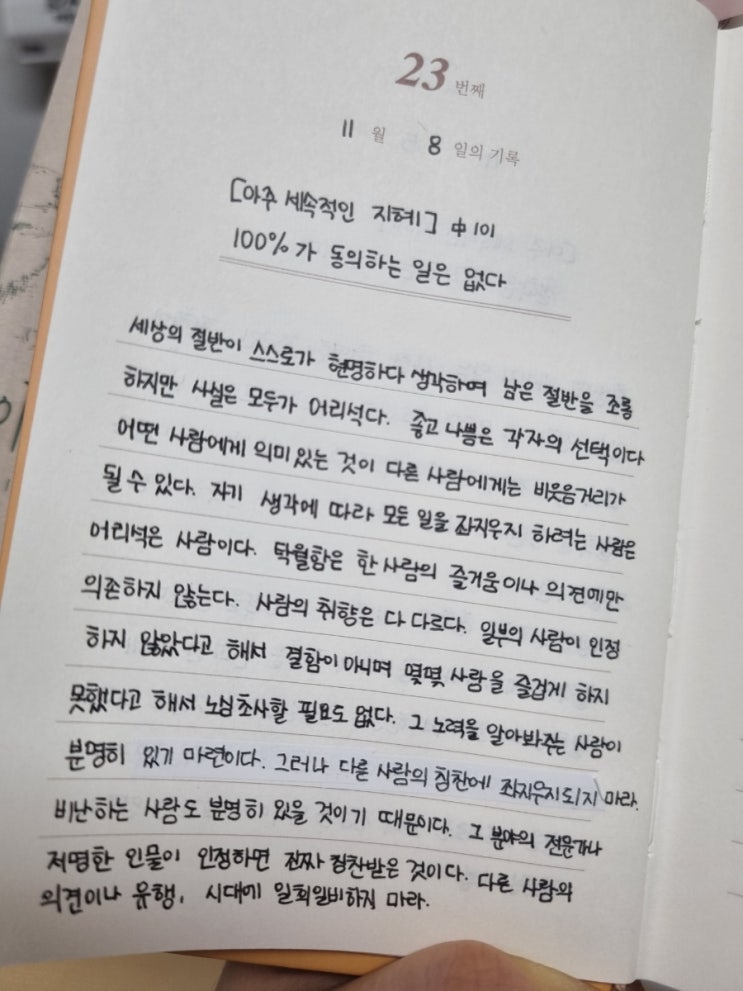 23 번째
11 월 8 일의 기록
[아주 세속적인 지혜] 中 101
100%가 동의하는 일은 없다
세상의 절반이 스스로가 현명하다 생각하며 남은 절반을 조롱
하지만 사실은 모두가 어리석다. 좋고 나쁨은 각자의 선택이다
어떤 사람에게 의미있는 것이 다른 사람에게는 비웃음거리가
될 수 있다. 자기 생각에 따라 모든 일을 좌지우지 하려는 사람은
어리석은 사람이다. 탁월함은 한 사람의 즐거움이나 의견에만
의존하지 않는다. 사람의 취향은 다 다르다. 일부의 사람이 인정
하지 않았다고 해서 결함이 아니며 몇몇 사람을 즐겁게 하지
못했다고 해서 노심초사할 필요도 없다. 그 노력을 알아봐주는 사람이
분명히 있기 마련이다. 그러나 다른 사람의 칭찬에 좌지우지되지 마라.
비난하는 사람도 분명히 있을 것이기 때문이다. 그 분야의 전문가나
저명한 인물이 인정하면 진짜 칭찬받은 것이다. 다른 사람의
의견이나 유행, 시대에 일희일비하지 마라.